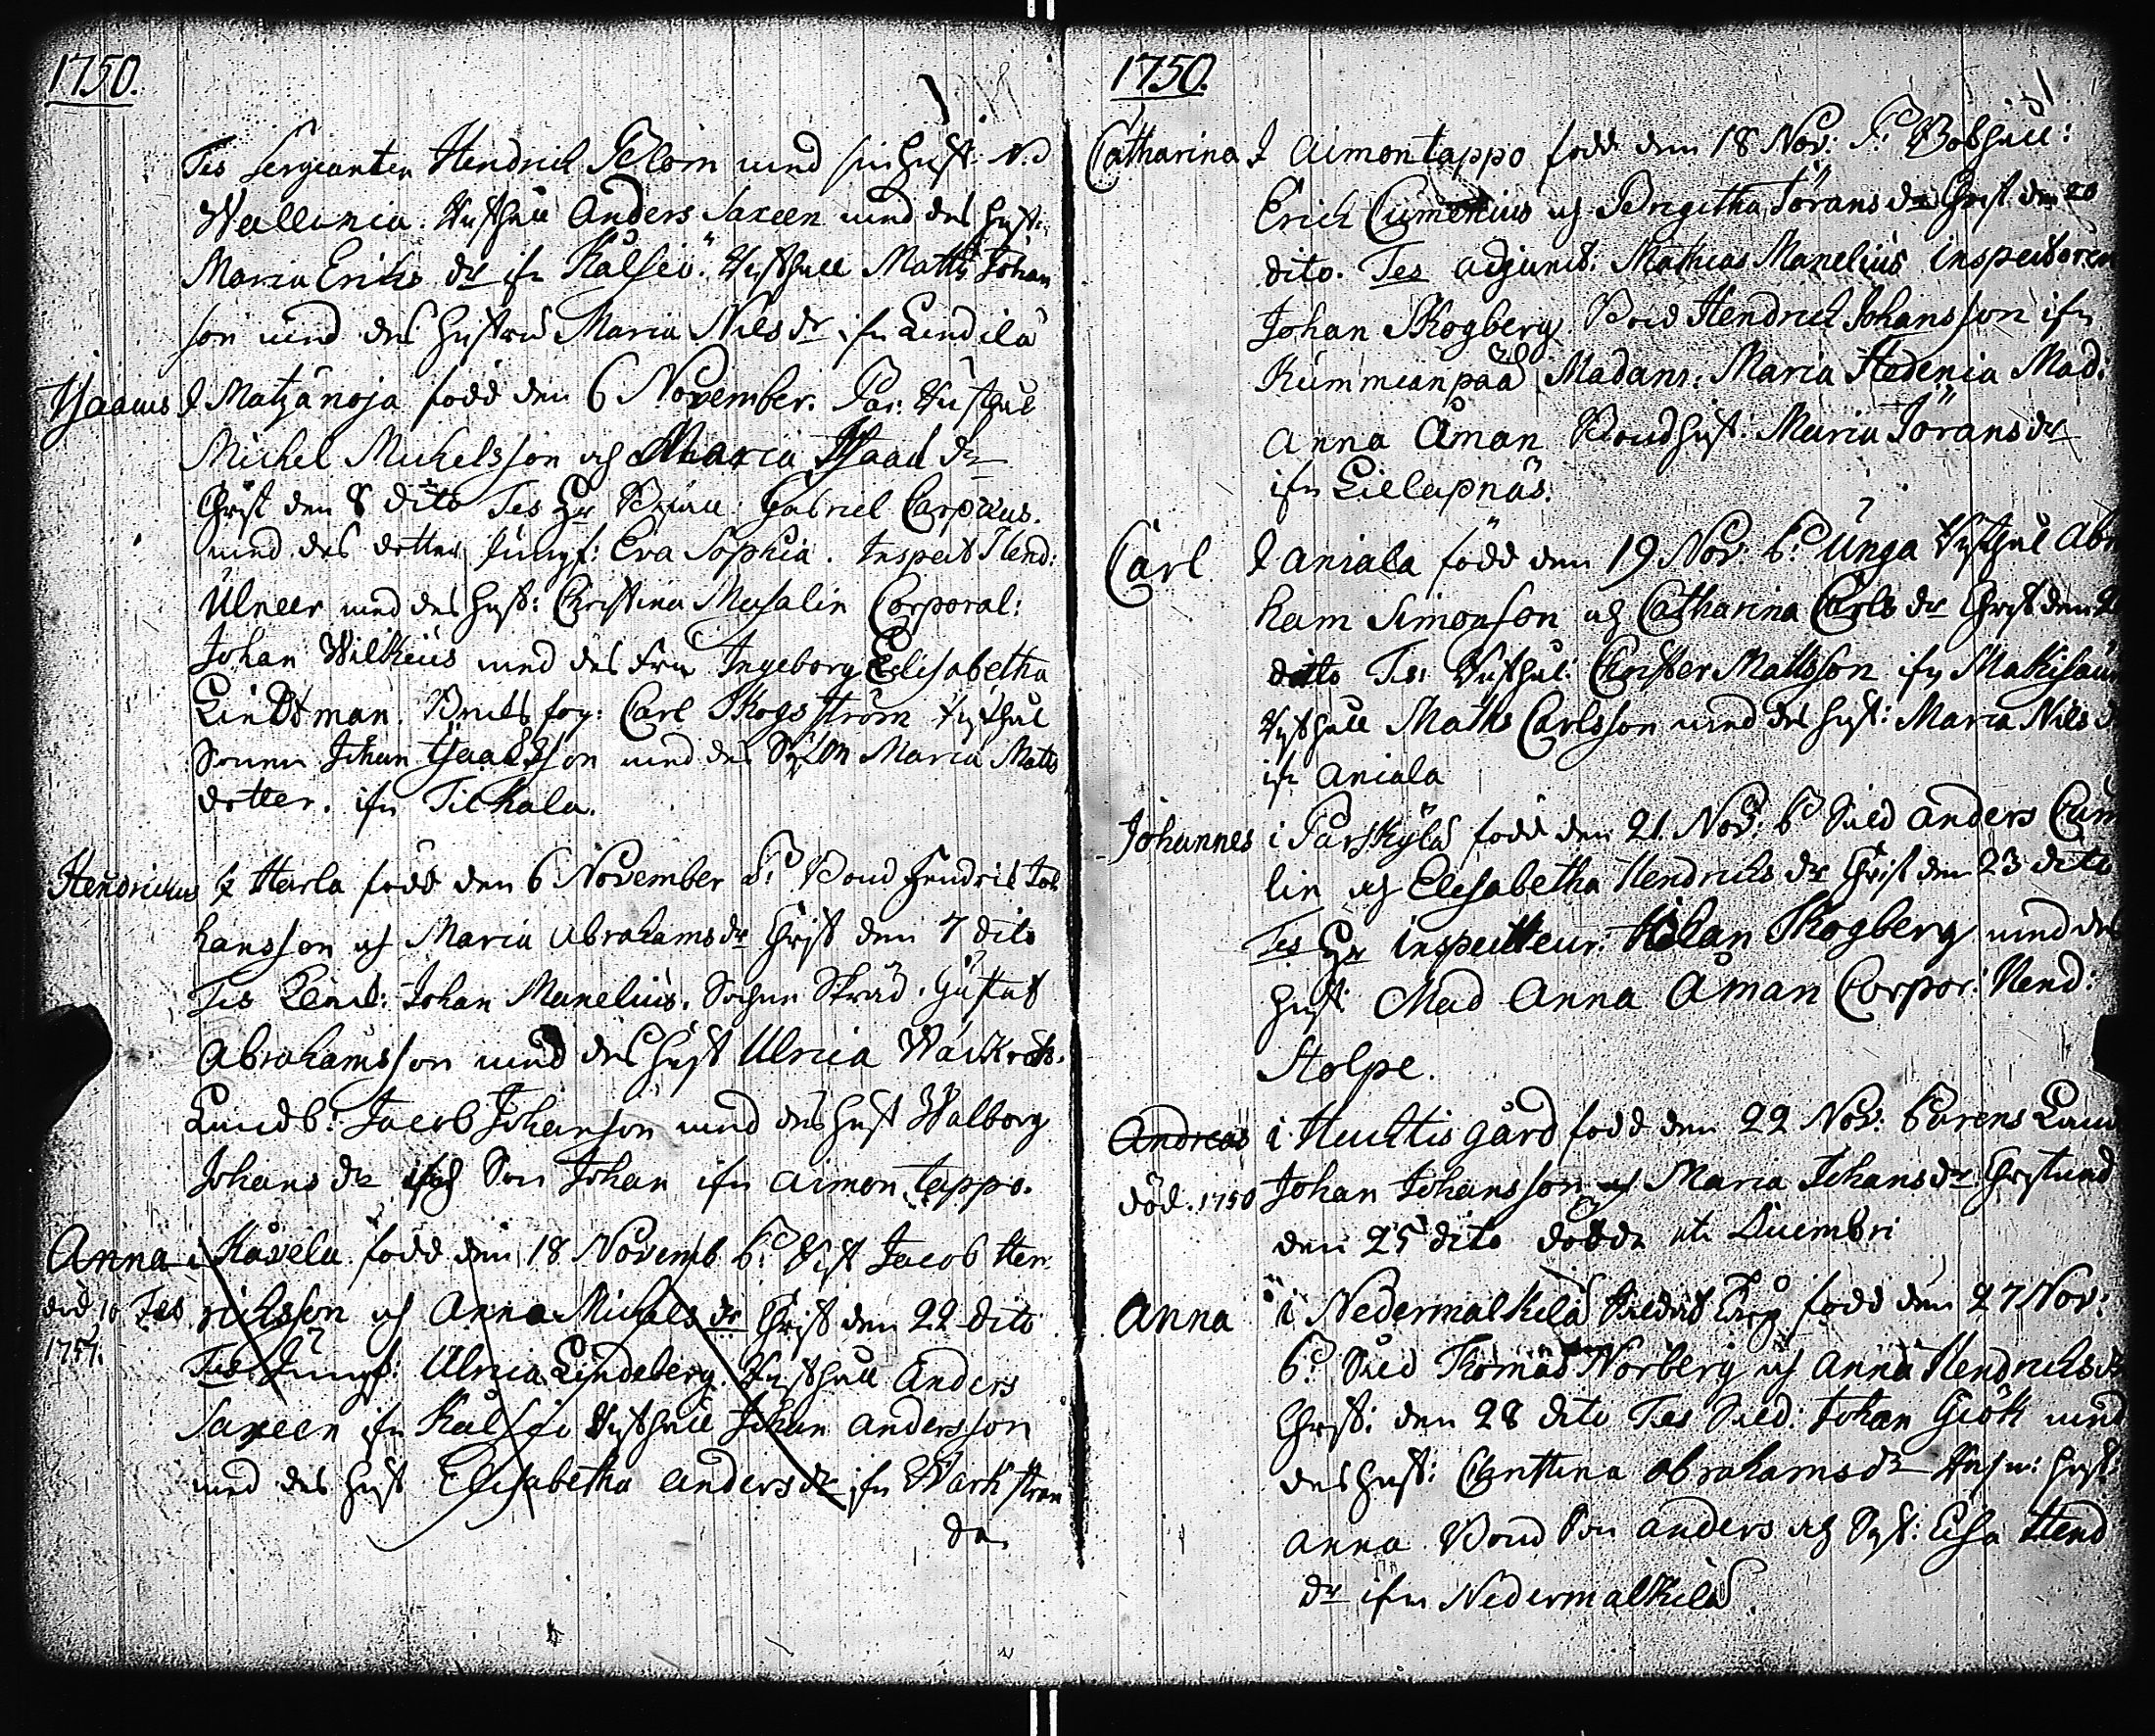 1750.
Tes Sergeanten Hendrich Blom med sin hust: N.d
Wallenia. Rusthåll Anders Saxeen med des hust:
Maria Eriks dr ifr Kälsiö. Rusthåll Matts Johan
son med des hustru Maria Nils dr ifr Lindilä
Isaacus I Matzänoja född den 6 November. Par: Rusthål
Michel Michelsson och Maria Isaacs dr
Christ den 8 dito Tes Hr Gabriel Carpæus.
med des dotter Jungf: Eva Sophia. Inspect Hend:
Ulneer med des hust: Christina Musalin Corporal:
Johan Wilkeus med des Fru Ingeborg Elisabetha
Lindtman. Bruks fog: Carl Skogström Rusthål
Sonen Johan Isaacsson med des Maria Matts
dotter. ifr Tickala.
Hendrichus I Harla född den 6 November P: Bond Hendric Joh
hansson och Maria Abrahams dr Christ den 7 dito
Tes Johan Manelius. Sochne Skräd. Gustaf
Abrahamsson med des hust Ulrica
Landb: Jacob Johanson med des hust Walborg
Johans dr och Son Johan ifr Aimontappo.
Anna i Kåvela född den 18 Novemb P: Rust Jacob Hen
död 10 Tes richsson och Anna Michels dr Christ den 22 dito
1751.
Tes Jungf: Ulrica Lindeberg. Rusthåll Anders
Saxeen ifr Kälsiö Rusthåll Johan Andersson
med des hust Elisabetha Anders dr ifr Wark stran
da
1750.
Catharina I Aimontappo född den 18 Nov: P: Bokhåll:
Erich Cumenius och Brigitha Jörans dr Christ den 20
dito. Tes adjunct: Mathias Manelius Inspectoren
Johan Skogberg. Bond Hendrich Johansson ifr
Kummianpää Madam: Maria Hedenia Mad.
Anna Åman Bondhust: Maria Jörans dr
ifr Lielapnäs.
Carl I Aniala född den 19 Nov: P: Unga Rusthål Abra
ham Simonson och Catharina Carls dr Christ den
ditto Tes: Rusthål: Christer Mattsson ifr
Rusthåll Maths Carlsson med des hust: Maria Nils d
ifr Aniala
Johannes i Parskylä född den 21. Nov: P: Anders Cum
lin och Elisabetha Hendrichs dr Christ den 23 dito
Tes Hr Inspecteur: Skogberg med des
hust: Mad Anna Åman Corpor: Hend:
Stolpe.
Andreas i Huchtis gård född den 22 Nov: Parens Land
död. 1750 Johan Johansson och Maria Johans dr Christnad
den 25 dito dödde uti Decembri
Anna i Nedermalkilä född den 27 Nov:
P: Thomas Norberg och Anna Hendrichs dr
Christ: den 28 dito Tes Johan Giök med
des hust: Christina Abrahams dr hust:
Anna Bond Son Anders och Hend
dr ifr Nedermalkilä.